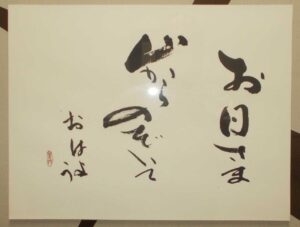 お日さま
山からのぞいて
おは